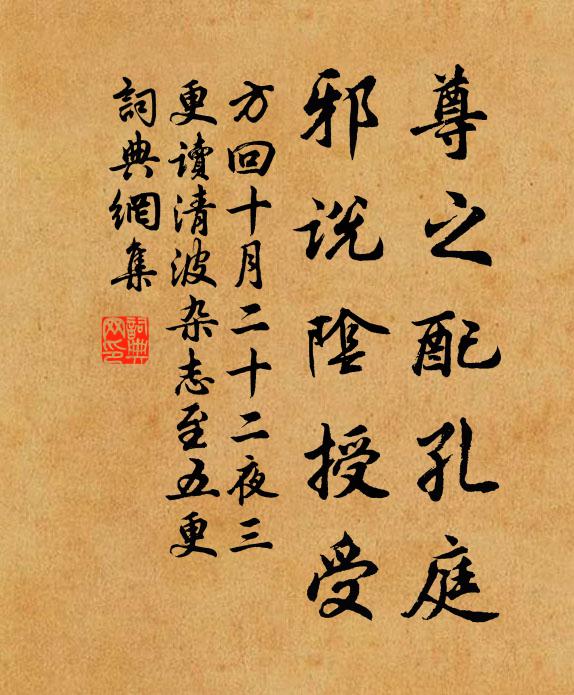 尊之配孔庭
邪说陰授受
方回十月二十二夜三
更讀清波杂志至五更
詞典網集
詞典網印